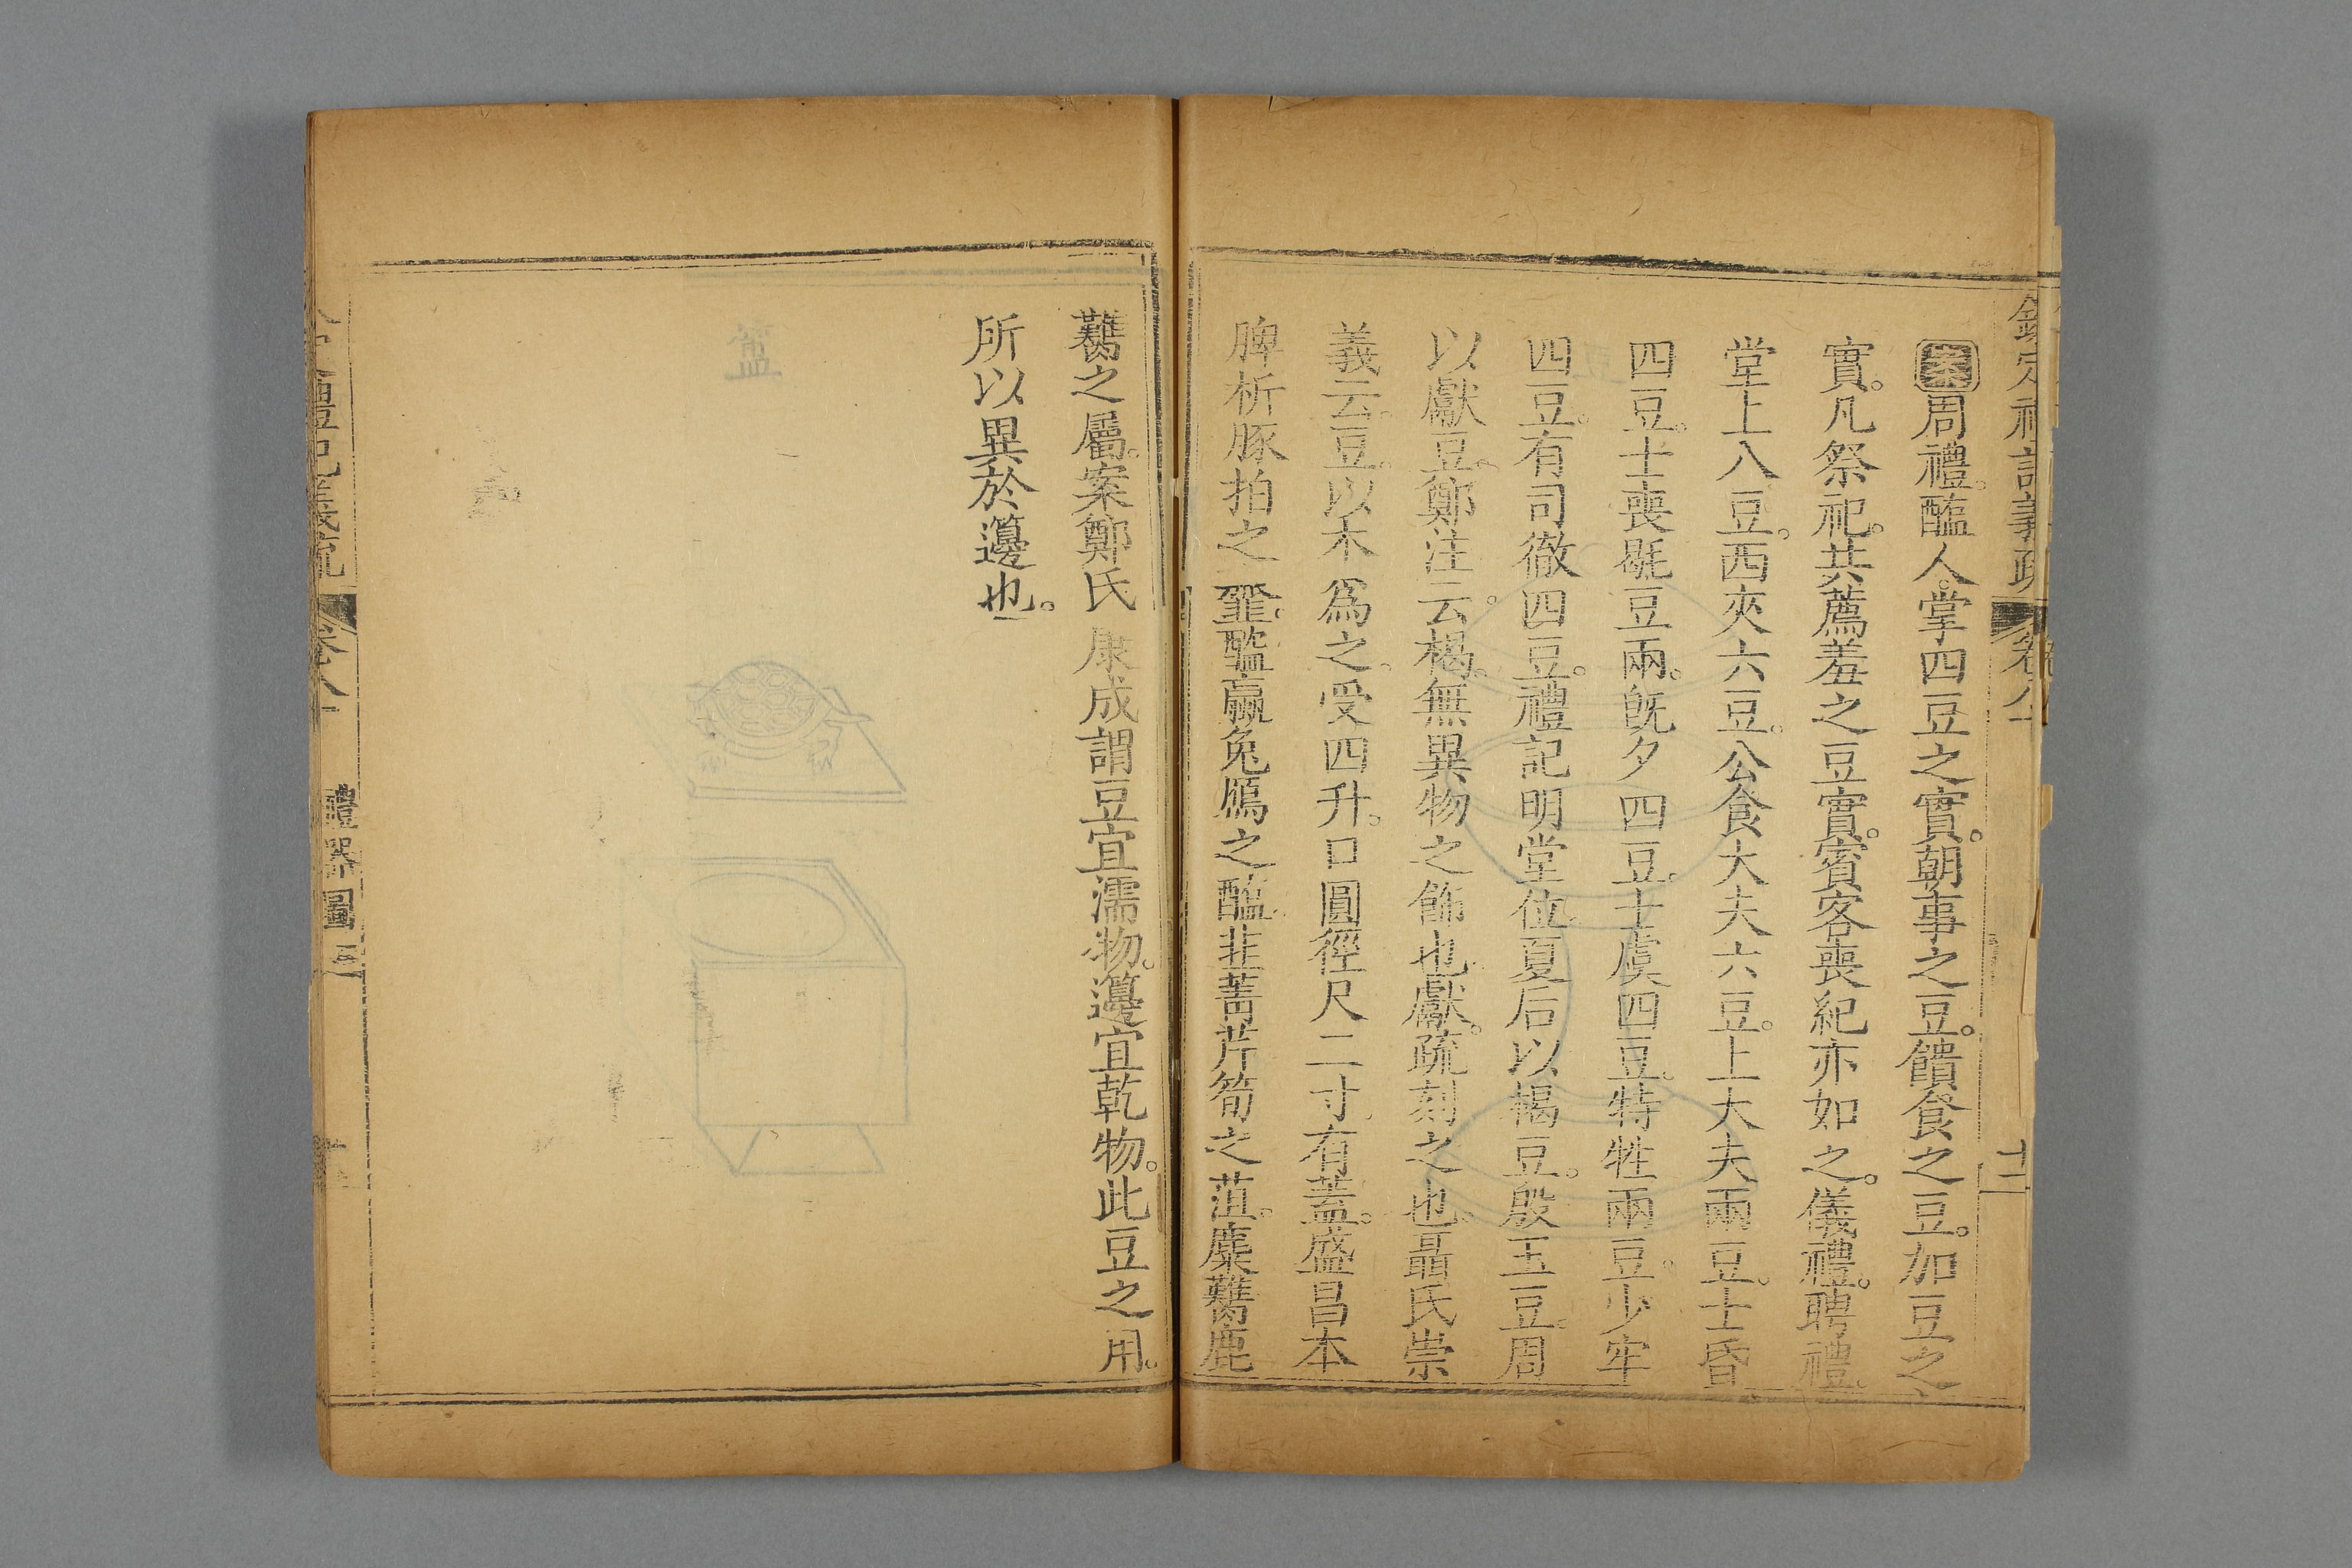 欽定禮記義疏 卷八十 十二
案周禮。醢人。掌四豆之實。朝事之豆。饋食之豆。加豆之
實。凡祭祀。共薦羞之豆實。賓客喪紀亦如之。儀禮。聘禮。
堂上八豆。西夾六豆。公食大夫六豆。上大夫兩豆。士昏
四豆。士喪毼豆兩。旣夕四豆。士虞四豆。特牲兩豆。少牢
四豆。有司徹四豆。禮記明堂位。夏后以楬豆。殷玉豆。周
以獻豆。鄭注云。楬。無異物之飾也。獻。疏刻之也。聶氏崇
義云。豆。以木爲之。受四升。口圓徑尺二寸。有蓋。盛昌本
脾析豚拍之韲。醓蠃兔鴈之醢。韭菁芹筍之菹。麋臡鹿
臡之屬。案鄭氏康成謂豆宜濡物。籩宜乾物。此豆之用。
所以異於籩也。
禮記義疏 卷八十 禮器圖三